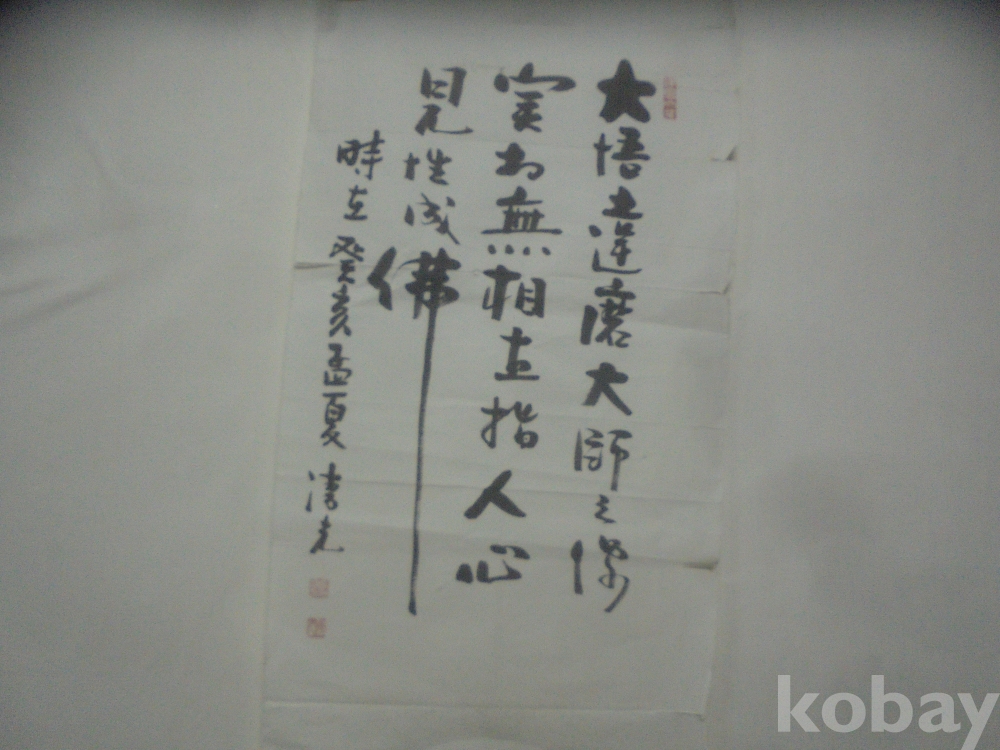 大悟之達磨大師之像
実相無相直指人心
見性成佛
時在癸亥孟夏清光
kobay